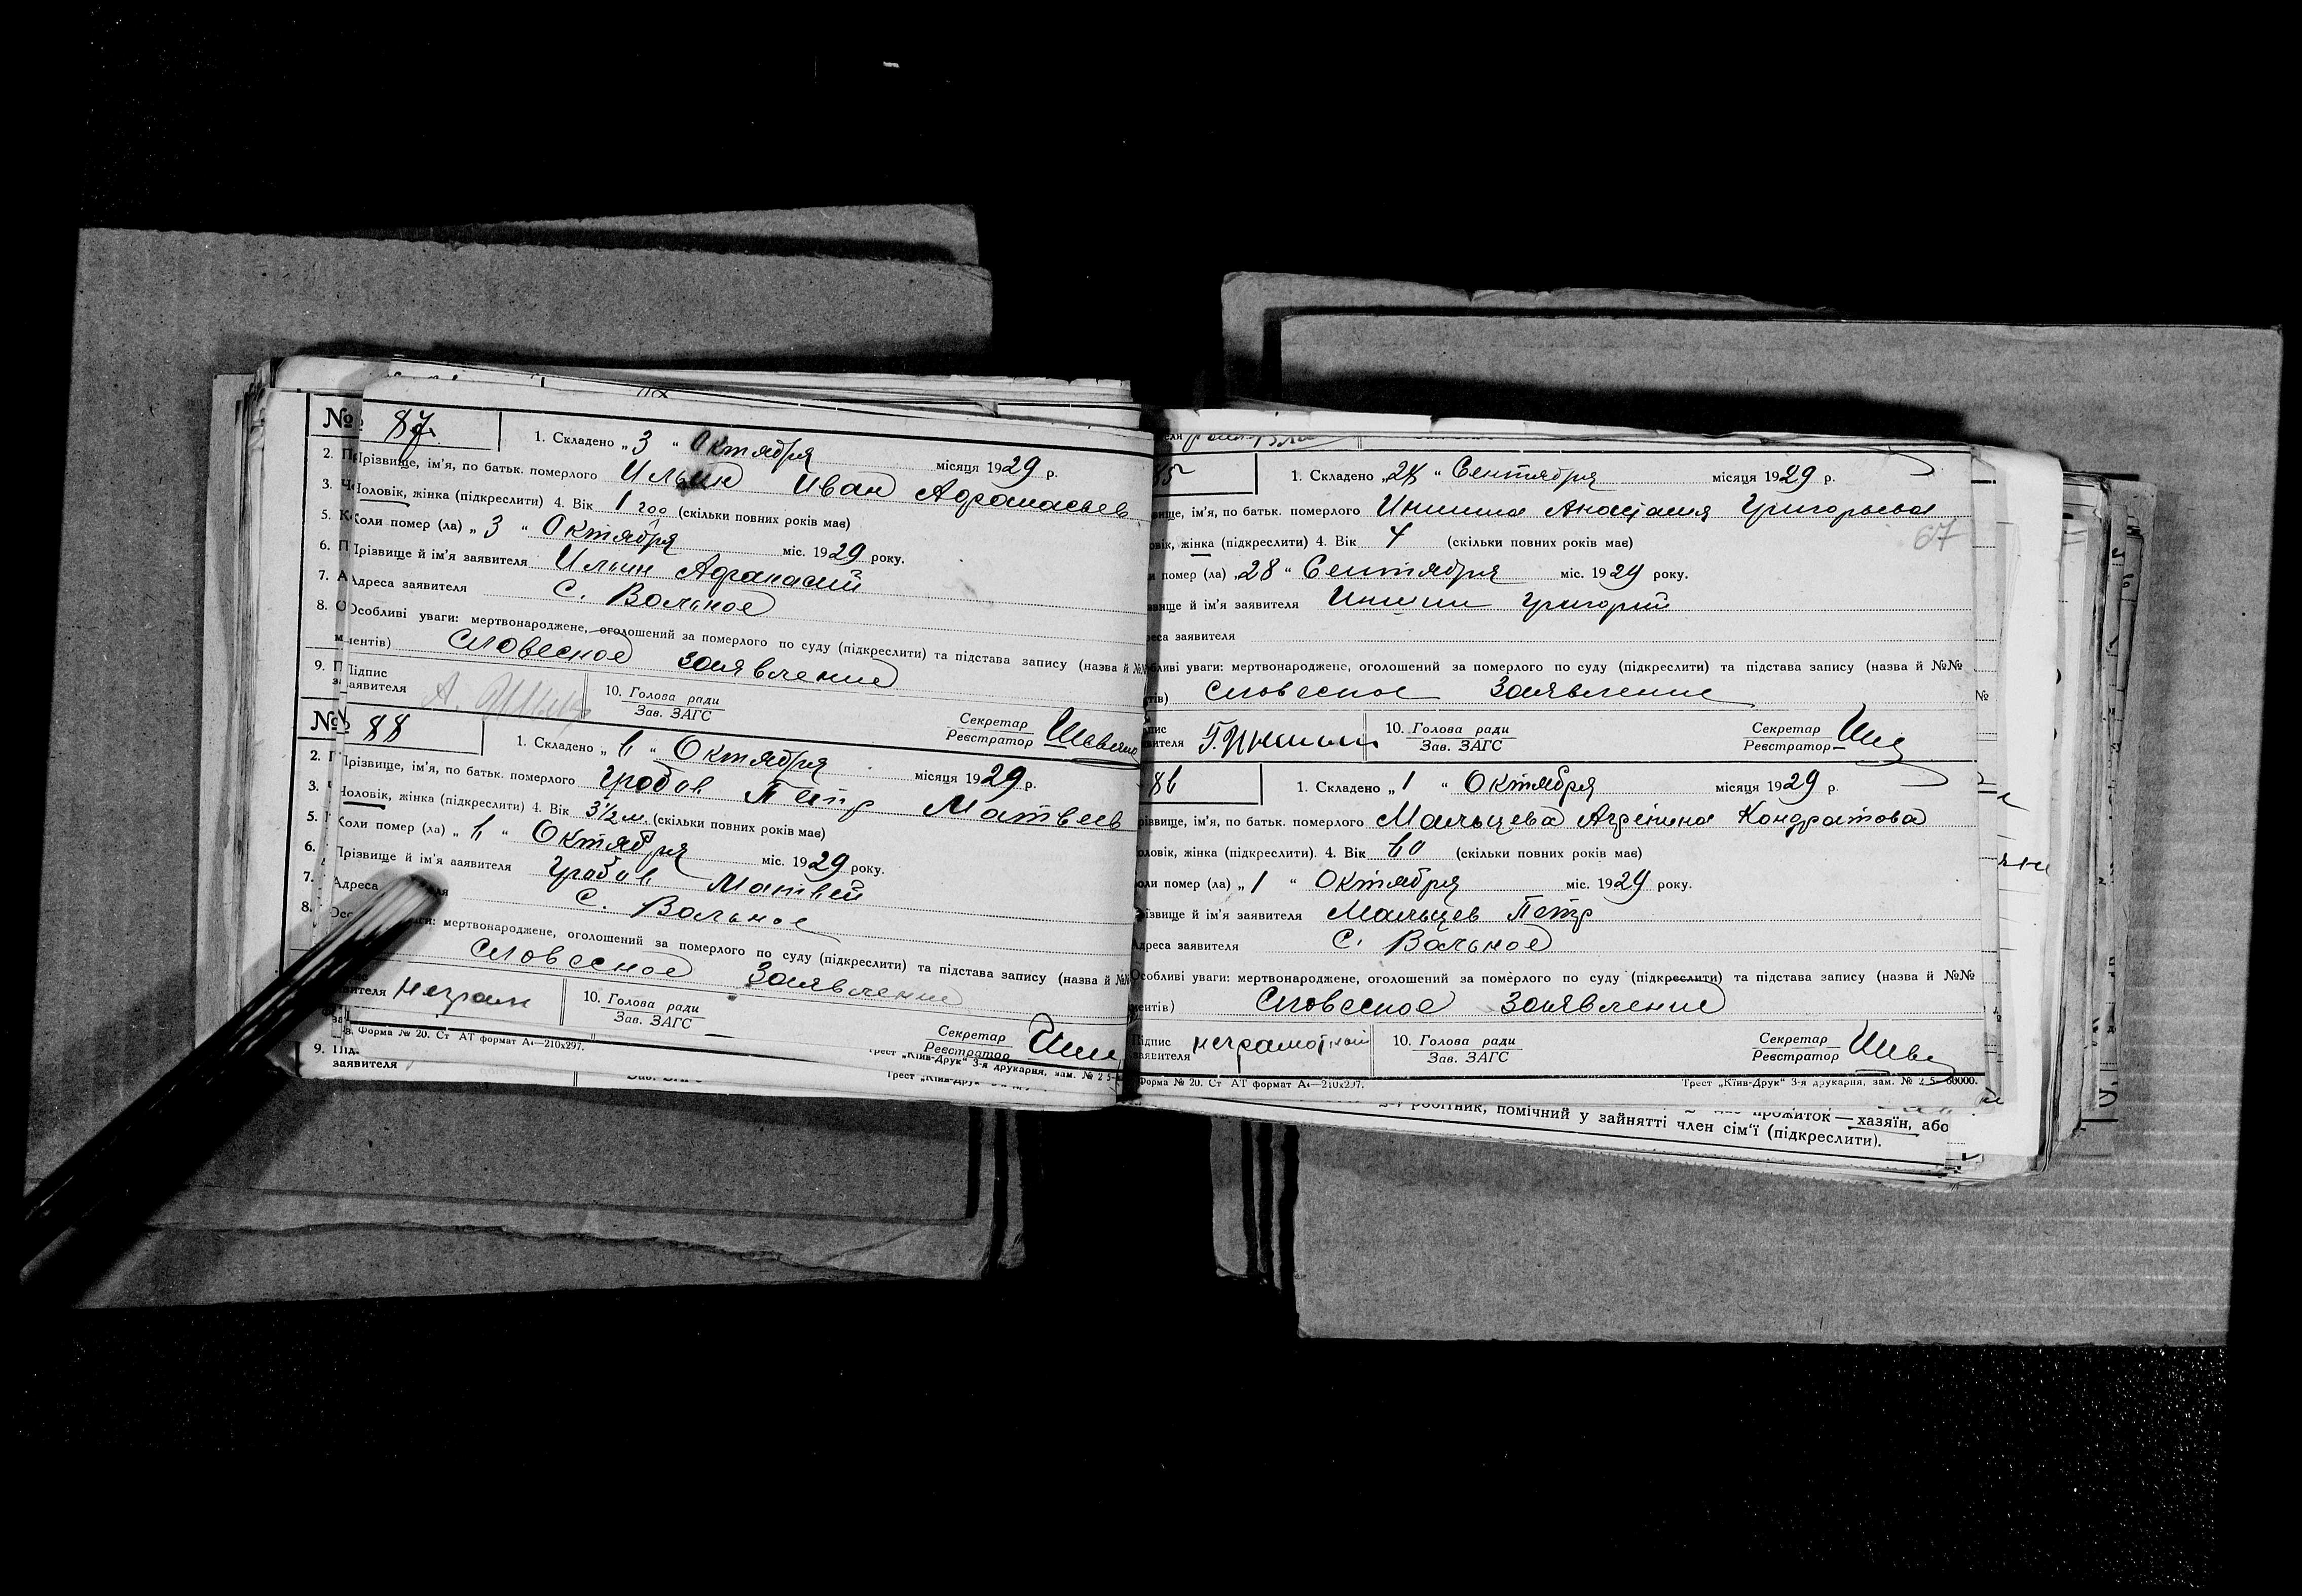 № 87 1. Складено „ 3 “ Октября місяця 1929 р.
2. Прізвище, ім'я, по батьк. померлого Ильин Иван Афанасьев
3. Чоловік, жінка (підкреслити) 4. Вік 1 год (скільки повних років має)
5. Коли помер (ла) „ 3 “ Октября міс. 1929 року.
6. Прізвище й ім'я заявителя Илиин Афанасий
7. Адреса заявителя С. Вольное
8. Особливі уваги: мертвонароджене, оголошений за померлого по суду (підкреслити) та підстава запису (назва й №№
ментів) Словесное Заявление
9. Підпис заявителя 10. Голова ради Зав. ЗАГС Секретар Реєстратор
№ 88 1. Складено „ 6 “ Октября місяця 1929 р.
2. Прізвище, ім'я, по батьк. померлого Грабов Петр Матвеев
3. Чоловік, жінка (підкреслити) 4. Вік 3½ м. (скільки повних років має)
5. Коли помер (ла) „ 6 “ Октября міс. 1929 року.
6. Прізвище й ім'я заявителя Грабов Матвей
7. Адреса С. Вольное
8. уваги: мертвонароджене, оголошений за померлого по суду (підкреслити) та підстава запису (назва й №№
Словесное Заявление
неграм 10. Голова ради Зав. ЗАГС Секретар Реєстратор
Форма № 20. Ст АТ формат А4—210х297. Трест „Київ-Друк“ 3-я друкарня, зам. №
9. Підпис
заявителя
85 1. Складено „ 28 “ Сентября місяця 1929 р.
вище, ім'я, по батьк. померлого Иншина Анастасия Григорьева
67
овік, жінка (підкреслити) 4. Вік 4 (скільки повних років має)
и помер (ла) „ 28 “ Сентября міс. 1929 року.
вище й ім'я заявителя Иншин Григорий
реса заявителя
бливі уваги: мертвонароджене, оголошений за померлого по суду (підкреслити) та підстава запису (назва й №№
тів) Словесное Заявление
пис вителя 10. Голова ради Зав. ЗАГС Секретар Реєстратор
86 1. Складено „ 1 “ Октября місяця 1929 р.
різвище, ім'я, по батьк. померлого Мальцева Агрепина Кондратова
оловік, жінка (підкреслити) 4. Вік 60 (скільки повних років має)
оли помер (ла) „ 1 “ Октября міс. 1929 року.
різвище й ім'я заявителя Мальцев Петр
Адреса заявителя С. Вольное
Особливі уваги: мертвонароджене, оголошений за померлого по суду (підкреслити) та підстава запису (назва й №№
ментів) Словесное Заявление
Підпис заявителя неграмотний 10. Голова ради Зав. ЗАГС Секретар Реєстратор
Форма № 20. Ст АТ формат А4—210х297. Трест „Київ-Друк“ 3-я друкарня, зам. № 60000.
робітник, помічний у зайнятті член сім'ї (підкреслити).
прожиток — хазяїн, або